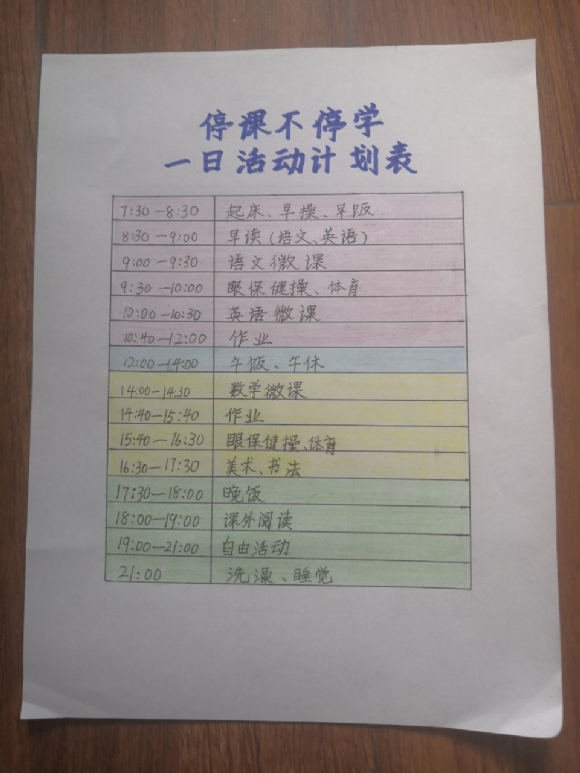 停课不停学
一日活动计划表
7:30—8:30 起床、早操、早饭
8:30—9:00 早读(语文、英语)
9:00—9:30 语文微课
9:30—10:00 眼保健操、体育
10:00—10:30 英语微课
10:40—12:00 作业
12:00—14:00 午饭、午休
14:00—14:30 数学微课
14:40—15:40 作业
15:40—16:30 眼保健操、体育
16:30—17:30 美术、书法
17:30—18:00 晚饭
18:00—19:00 课外阅读
19:00—21:00 自由活动
21:00 洗澡、睡觉